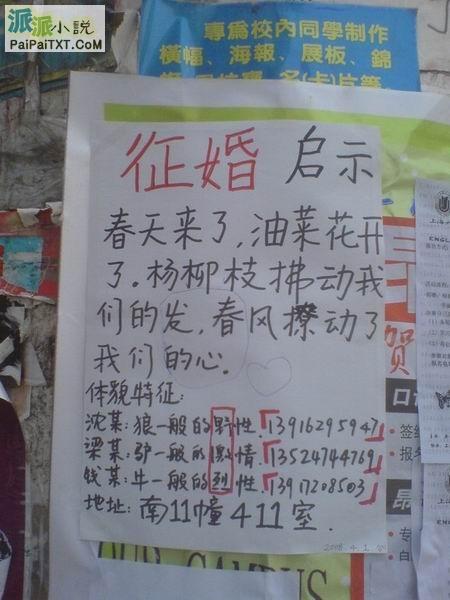 派派小说
PaiPaiTXT.Com
專為校內同學制作
橫幅、海報、展板、錦
征婚 启示
春天来了,油菜花开
了.杨柳枝拂动我
们的发,春风撩动了
我们的心.
体貌特征:
沈某:狼一般的野性.「13916295947」
梁某:驴一般的激情.「13524744769」
钱某:牛一般的烈性.「13917208503」
地址:南11幢411室.
2008.4.1
贺
口
签
报
昂
专
白
上海
ENGL
OUR CAMPUS